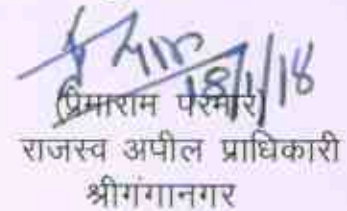 18/1/18
(प्रेमाराम परमार)
राजस्व अपील प्राधिकारी
श्रीगंगानगर